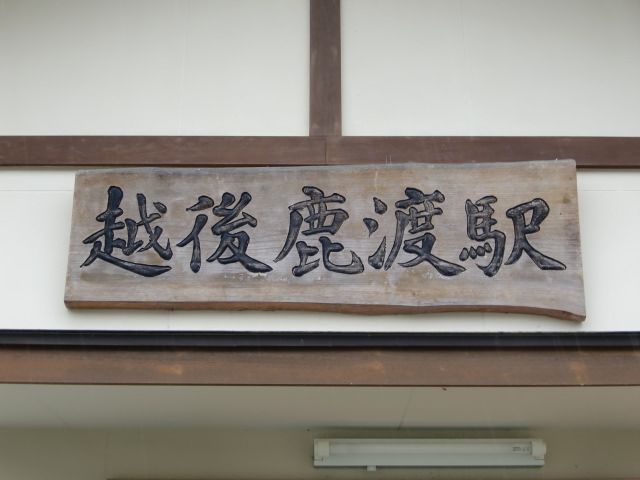 越後鹿渡駅